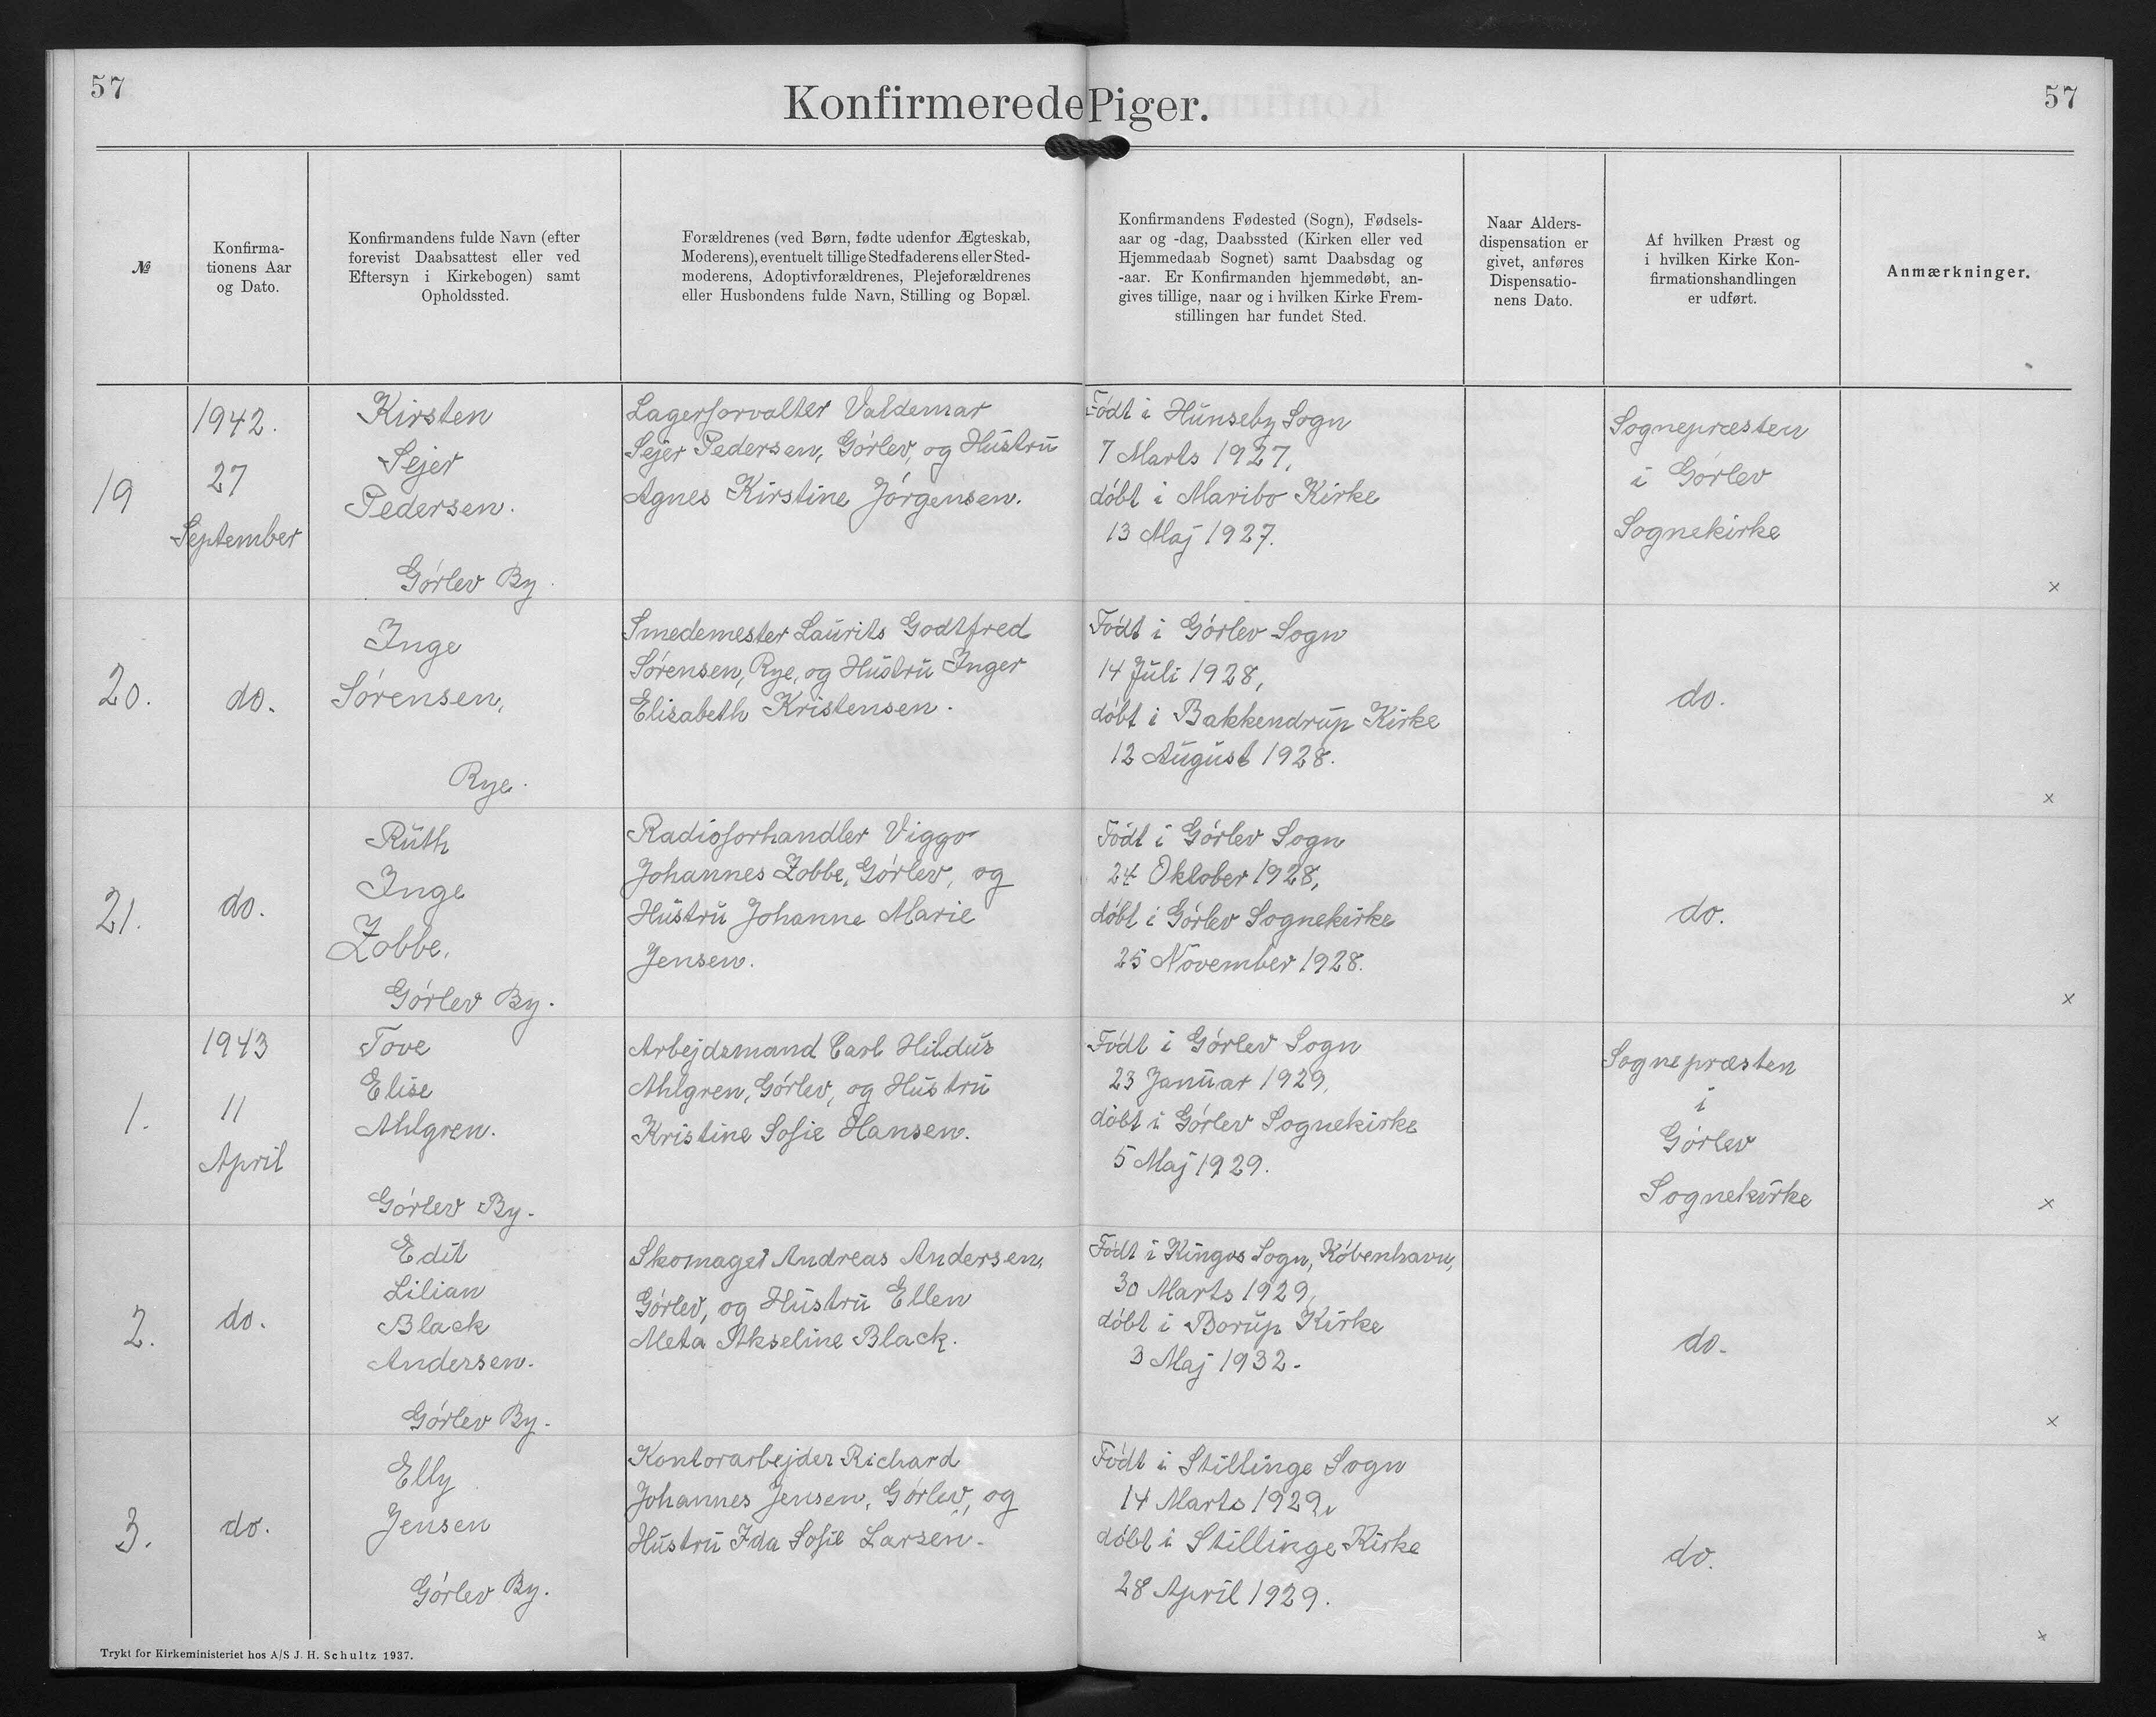 57
57
Konfirmerede Piger.
№
Konfirma-
tionens Aar
og Dato.
Konfirmandens fulde Navn (efter
forevist Daabsattest eller ved
Eftersyn i Kirkebogen) samt
Opholdssted.
Forældrenes (ved Børn, fødte udenfor Ægteskab,
Moderens), eventuelt tillige Stedfaderens eller Sted-
moderens, Adoptivforældrenes, Plejeforældrenes
eller Husbondens fulde Navn, Stilling og Bopæl.
Konfirmandens Fødested (Sogn), Fødsels-
aar og -dag, Daabssted (Kirken eller ved
Hjemmedaab Sognet) samt Daabsdag og
-aar. Er Konfirmanden hjemmedøbt, an-
gives tillige, naar og i hvilken Kirke Frem-
stillingen har fundet Sted.
Naar Alders-
dispensation er
givet, anføres
Dispensatio-
nens Dato.
Af hvilken Præst og
i hvilken Kirke Kon-
firmationshandlingen
er udført.
Anmærkninger.
19
1942.
27
September
Kirsten
Sejer
Pedersen.
Gørlev By.
Lagerforvalter Valdemar
Sejer Pedersen, Gørlev, og Hustru
Agnes Kirstine Jørgensen.
Født i Hunseby Sogn
7 Marts 1927,
døbt i Maribo Kirke
13 Maj 1927.
Sognepræsten
i Gørlev
Sognekirke
x
20.
do.
Inge
Sørensen,
Rye.
Smedemester Laurits Godtfred
Sørensen, Rye, og Hustru Inger
Elisabeth Kristensen.
Født i Gørlev Sogn
14 Juli 1928,
døbt i Bakkendrup Kirke
12 August 1928.
do.
x
21.
do.
Ruth
Inge
Zobbe.
Gørlev By.
Radioforhandler Viggo
Johannes Zobbe, Gørlev, og
Hustru Johanne Marie
Jensen.
Født i Gørlev Sogn
24 Oktober 1928,
døbt i Gørlev Sognekirke
25 November 1928.
do.
x
1.
1943
11
April
Tove
Elise
Ahlgren.
Gørlev By.
Arbejdsmand Carl Hildus
Ahlgren, Gørlev, og Hustru
Kristine Sofie Hansen.
Født i Gørlev Sogn
23 Januar 1929,
døbt i Gørlev Sognekirke
5 Maj 1929.
Sognepræsten
i
Gørlev
Sognekirke
x
2.
do.
Edit
Lilian
Black
Andersen.
Gørlev By.
Skomager Andreas Andersen,
Gørlev, og Hustru Ellen
Meta Akseline Black.
Født i Kingos Sogn, København,
30 Marts 1929,
døbt i Borup Kirke
3 Maj 1932.
do.
x
3.
do.
Elly
Jensen
Gørlev By.
Kontorarbejder Richard
Johannes Jensen, Gørlev, og
Hustru Ida Sofie Larsen.
Født i Stillinge Sogn
14 Marts 1929,
døbt i Stillinge Kirke
28 April 1929.
do.
x
Trykt for Kirkeministeriet hos A/S J. H. Schultz 1937.